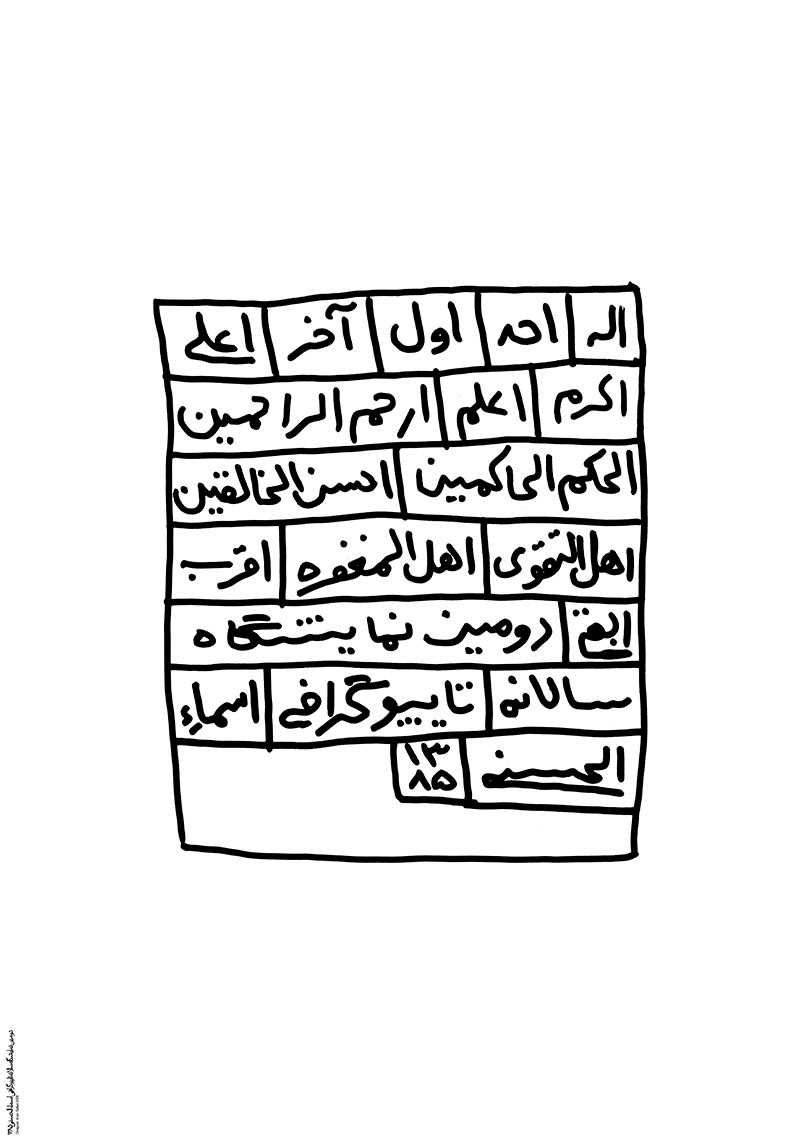 اله احد اول آخر اعلی
اکرم اعلم ارحم الراحمین
الحکم الحاکمین احسن الخالقین
اهل التقوی اهل المغفره اقرب
ابقی دومین نمایشگاه
سالانه تایپوگرافی اسماء
الحسنی ۱۳
۸۵